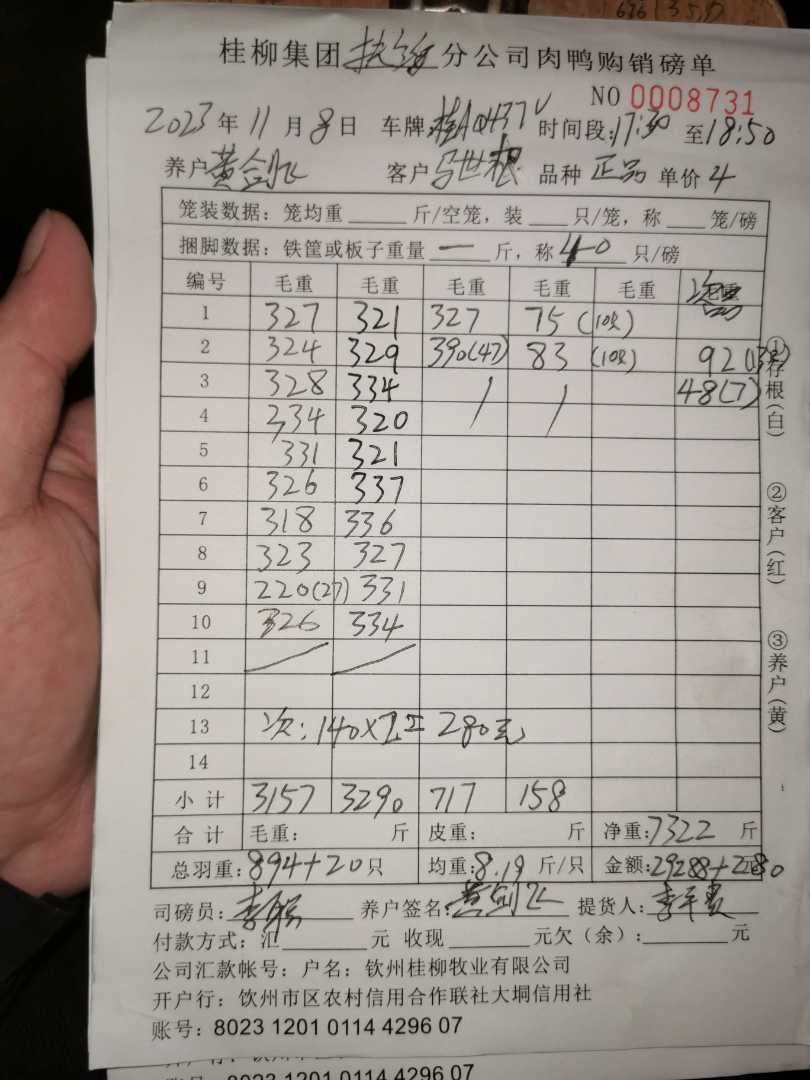 桂柳集团 分公司肉鸭购销磅单
NO 0008731
2023年11月8日 车牌:桂A0H37U 时间段:17:30至18:50
养户黄剑飞 客户马世根 品种 正品 单价 4
笼装数据：笼均重 斤/空笼，装 只/笼，称 笼/磅
捆脚数据：铁筐或板子重量 一 斤，称 40 只/磅
编号 毛重 毛重 毛重 毛重 毛重
1 327 321 327 75 (10只)
2 324 329 390(47) 83 (10只) 92(13只)
3 328 334 / / 48(7)
4 334 320
5 331 321
6 326 337
7 318 336
8 323 327
9 220(27) 331
10 326 334
11 / /
12
13 次:140×2= 280元
14
小计 3157 3290 717 158
合计 毛重: 斤 皮重: 斤 净重:7322 斤
总羽重:894+20只 均重:8.19 斤/只 金额:29288+280元
司磅员: 养户签名:黄剑飞 提货人:
付款方式:汇 元 收现 元欠(余):元
公司汇款帐号：户名：钦州桂柳牧业有限公司
开户行：钦州市区农村信用合作联社大垌信用社
账号：8023 1201 0114 4296 07
①存根(白)
②客户(红)
③养户(黄)
0231 1201 0114 4296 07